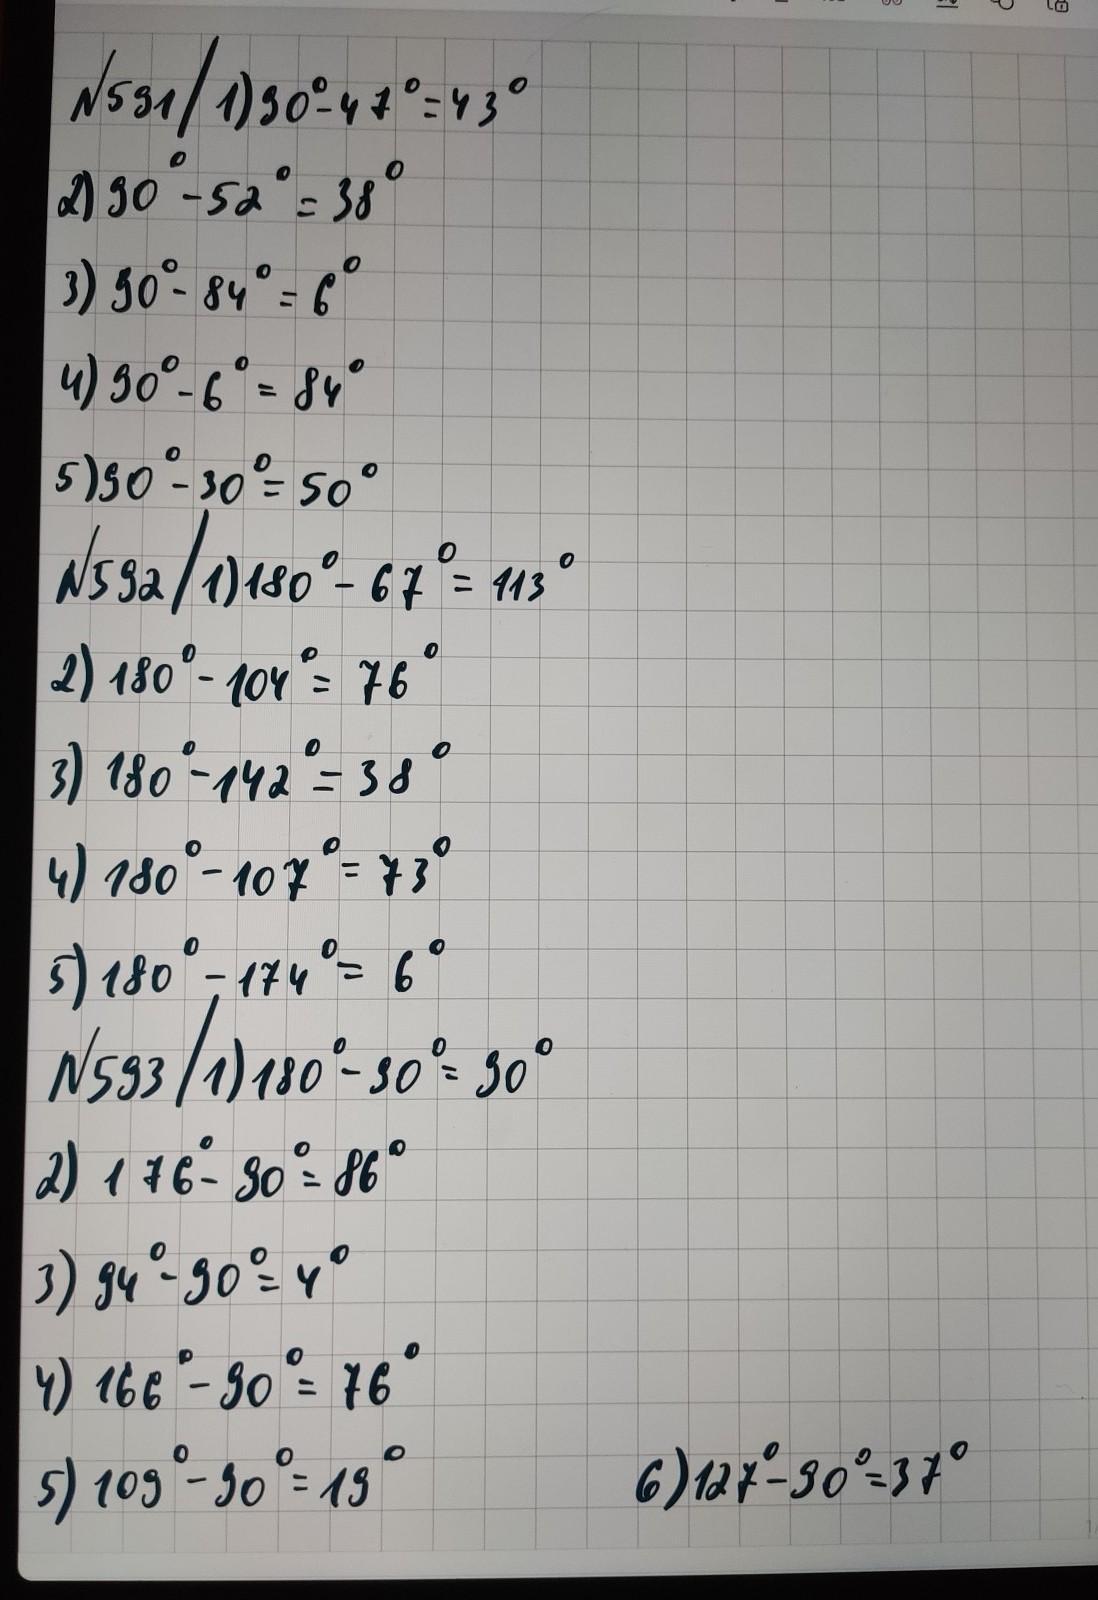 №591/1)90°-47°=43°
2)90°-52°=38°
3)90°-84°=6°
4)90°-6°=84°
5)90°-30°=50°
№592/1)180°-67°=113°
2)180°-104°=76°
3)180°-142°=38°
4)180°-107°=73°
5)180°-174°=6°
№593/1)180°-90°=90°
2)176°-90°=86°
3)94°-90°=4°
4)166°-90°=76°
5)109°-90°=19° 6)127°-90°=37°